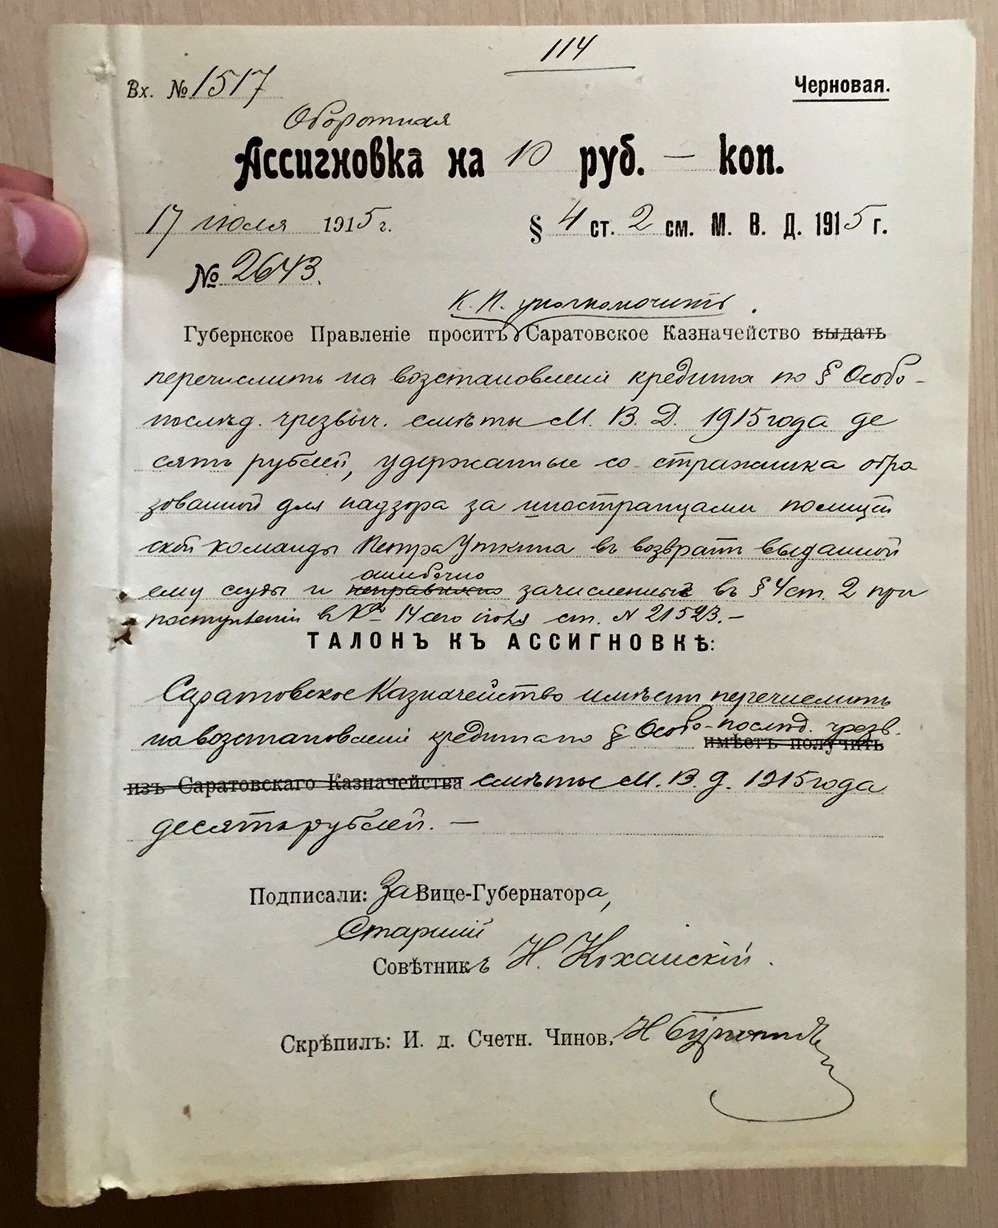 114
Вх. № 1517
Черновая.
Оборотная
Ассигновка на 10 руб. — коп.
17 июля 1915 г. § 4 ст. 2 см. М. В. Д. 1915 г.
№ 2643.
К. П. уполномочить.
Губернское Правленіе проситъ Саратовское Казначейство выдать
перечислить на возстановленіи кредита по § Особо-
послѣд. чрезвыч. смѣты М. В. Д. 1915 года де
сять рублей, удержанные со стражника обра
зованной для надзора за иностранцами полицей
ской команды Петра Уткина въ возвратъ выданной
ошибочно
ему ссуды и неправильно зачисленные въ § 4 ст. 2 при
поступленіи въ 14 сего іюля ст. № 21523.—
ТАЛОНЪ КЪ АССИГНОВКѢ:
Саратовское Казначейство имѣетъ перечислить
на возстановленіи кредита по § Особо-послѣд. чрезв.
имѣетъ получить
изъ Саратовскаго Казначейства смѣты М. В. Д. 1915 года
десять рублей. —
Подписали: За Вице-Губернатора,
Старшій
Совѣтникъ Н. Кохайскій.
Скрѣпилъ: И. д. Счетн. Чинов. Н